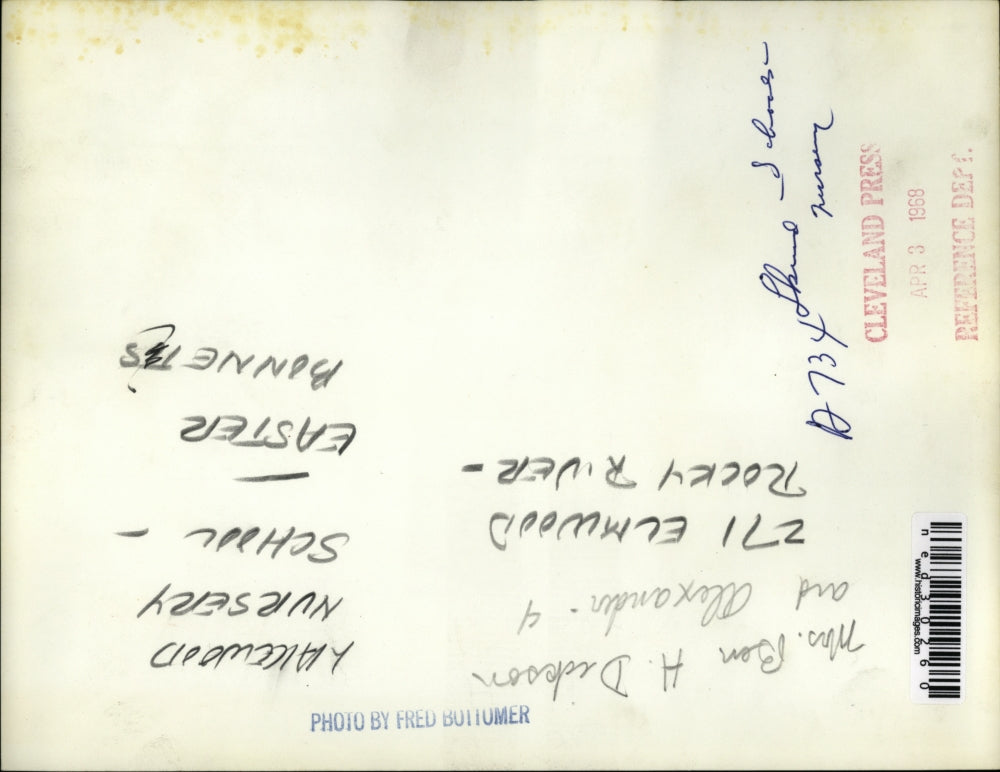 LAKEWOOD
NURSERY
SCHOOL -
—
EASTER
BONNETS
Mrs. Ben H. Dickson
and Alexander - 4
271 ELMWOOD
ROCKY RIVER -
PHOTO BY FRED BOTTOMER
D734
nursery
CLEVELAND PRESS
APR 3 1968
REFERENCE DEPT.
www.historicimages.com
ned30260